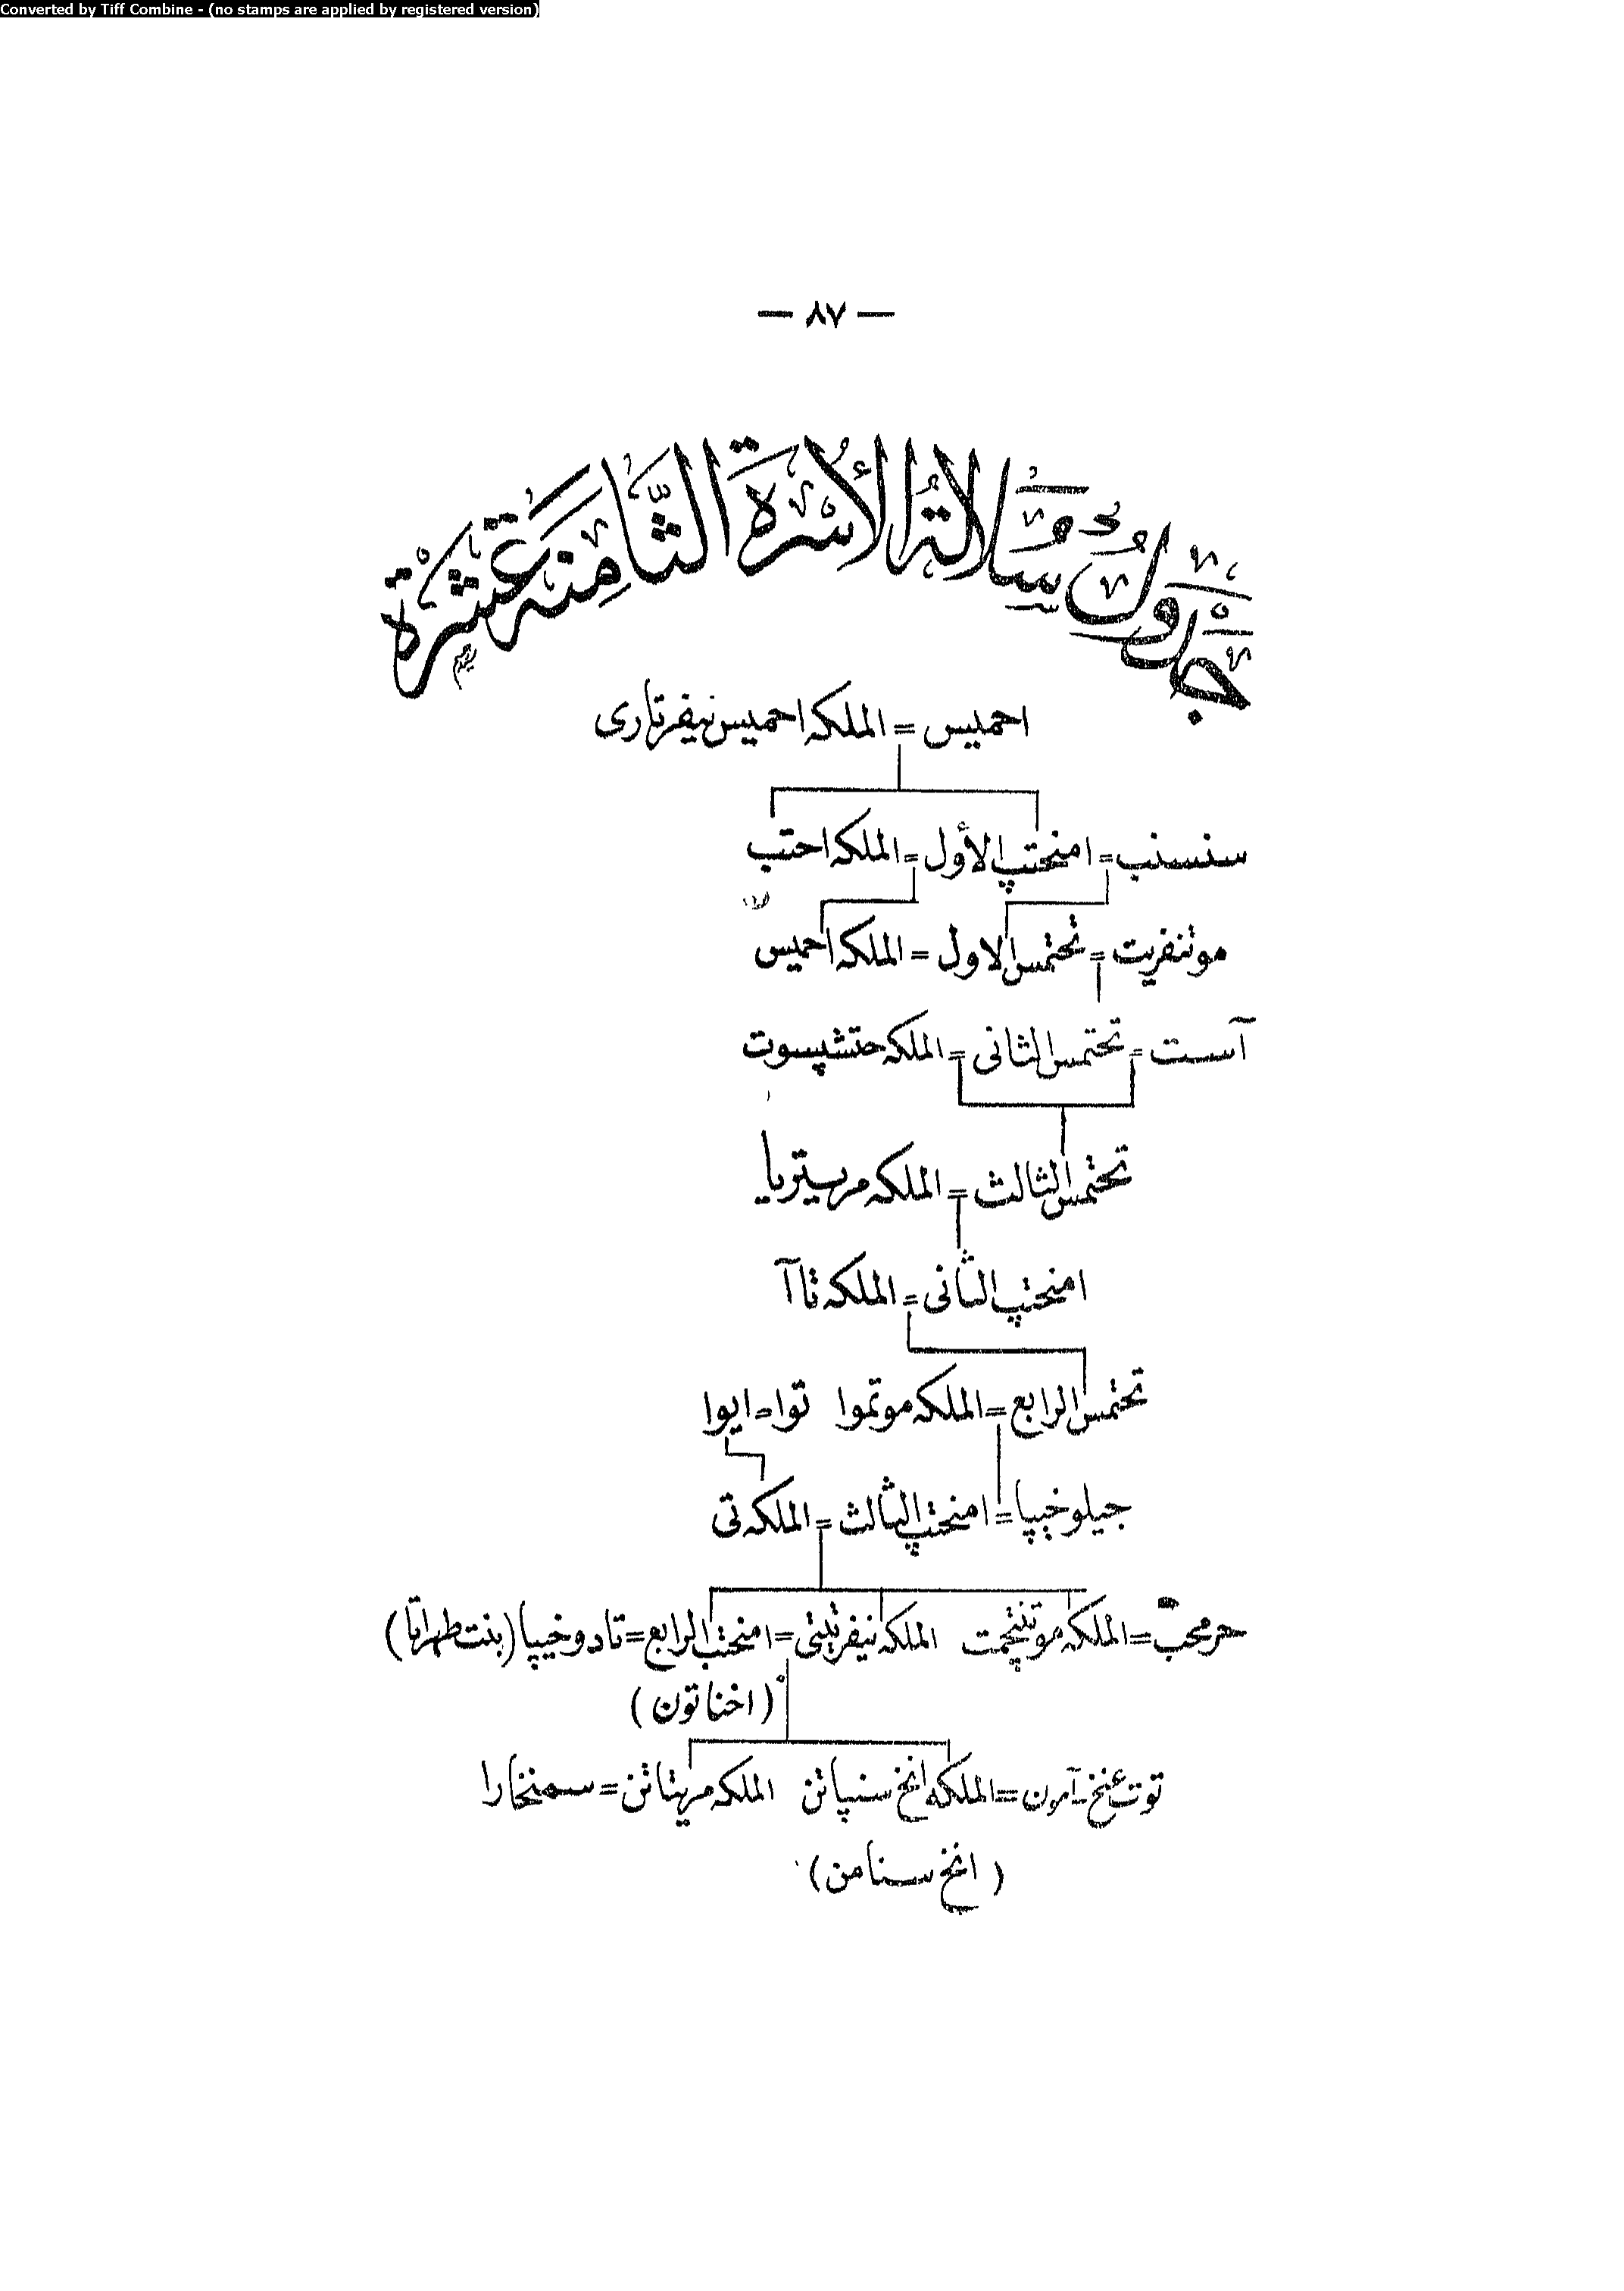 Converted by Tiff Combine - (no stamps are applied by registered version)
— ٨٧ —
جَدْوَلُ سُلَالَةُ الأُسْرَة الثَّامِنَه عَشْرَة
احميس = الملكه احميس نيفرتارى
سنسنب = امنحتپ الأول = الملكه احتب
موتنفريت = تحتمس الاول = الملكه احميس
آست = تحتمس الثانى = الملكه حتشپسوت
تحتمس الثالث = الملكه مريتريا
امنحتپ الثانى = الملكه تاآ
تحتمس الرابع = الملكه موتموا توا = ايوا
جيلوخيپا = امنحتپ الثالث = الملكه تى
حرمحبّ = الملكه موتنتجمت الملكه نيفرتيتى = امنحتپ الرابع = تادوخيپا (بنت طهراتا)
(اخناتون)
توت عنخ - آمون = الملكه انخ سنپاتن الملكه مريتاتن = سمنخارا
(انخ سنامن)